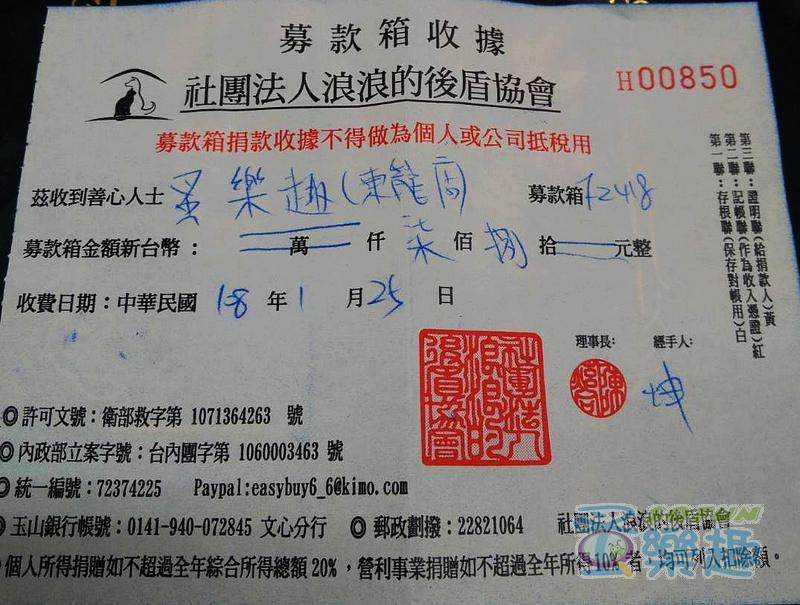 募款箱收據
社團法人浪浪的後盾協會
H00850
募款箱捐款收據不得做為個人或公司抵稅用
茲收到善心人士 蛋樂趣(東龍店) 募款箱 F2418
募款箱金額新台幣： 萬 仟 柒 佰 捌 拾 元整
收費日期：中華民國 108 年 1 月 25 日
第三聯：證明聯(給捐款人)黃
第二聯：記帳聯(作為收入憑證)紅
第一聯：存根聯(保存對帳用)白
理事長： 經手人：
坤
社團法人浪浪的後盾協會
◎許可文號：衛部救字第 1071364263 號
◎內政部立案字號：台內團字第 1060003463 號
◎統一編號：72374225 Paypal:easybuy6_6@kimo.com
◎玉山銀行帳號：0141-940-072845 文心分行 ◎郵政劃撥：22821064 社團法人浪浪的後盾協會
個人所得捐贈如不超過全年綜合所得總額20%，營利事業捐贈如不超過全年所得10%者，均可列入扣除額。